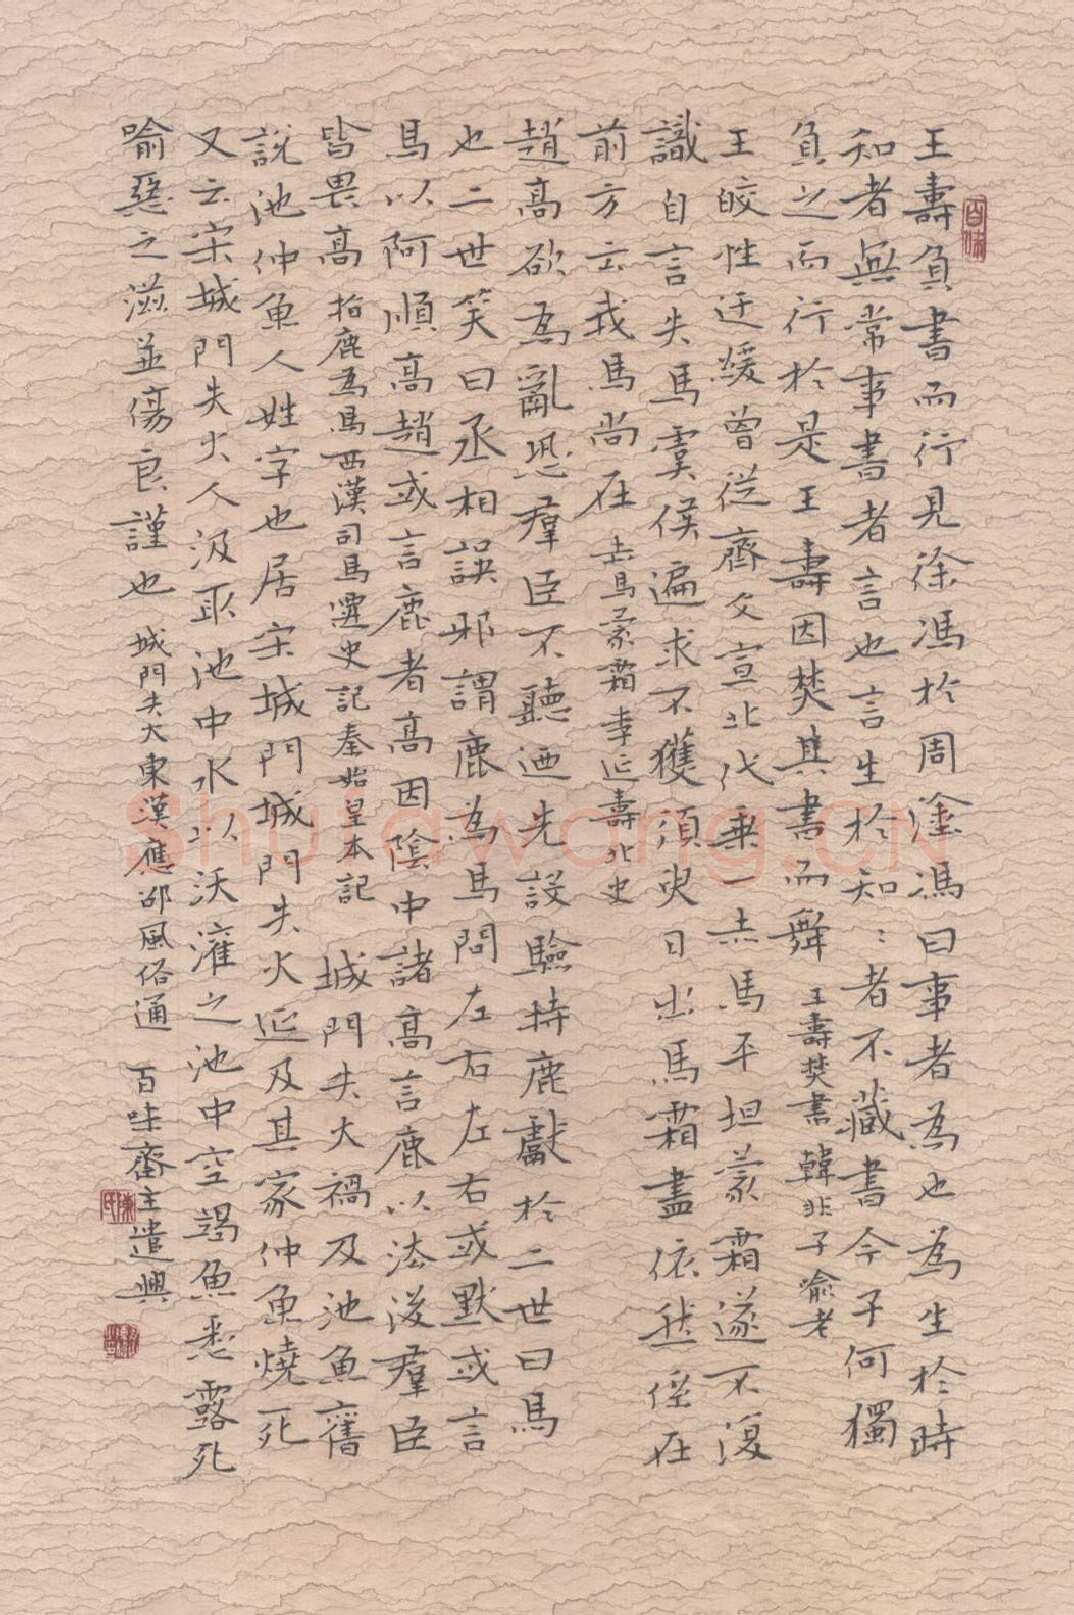 王壽負書而行見徐馮於周塗馮曰事者為也為生於時
知者無常事書者言也言生於知〻者不藏書今子何獨
負之而行於是王壽因焚其書而舞 王壽焚書 韓非子喻老
王皎性迂緩曾從齊文宣北伐乘一赤馬平坦蒙霜遂不復
識自言失馬虞候遍求不獲須臾日出馬霜盡依然係在
前方云我馬尚在 赤馬蒙霜 李延壽北史
趙高欲為亂恐羣臣不聽迺先設驗持鹿獻於二世曰馬
也二世笑曰丞相誤邪謂鹿為馬問左右左右或默或言
馬以阿順高趙或言鹿者高因陰中諸高言鹿以法後羣臣
皆畏高 指鹿為馬 西漢司馬遷史記秦始皇本記 城門失火禍及池魚舊
說池仲魚人姓字也居宋城門城門失火延及其家仲魚燒死
又云宋城門失火人汲取池中水以沃灌之池中空竭魚悉露死
喻惡之滋並傷良謹也 城門失火 東漢應邵風俗通 百味齋主遣興
百味
陳氏
Shuhuawang.CN